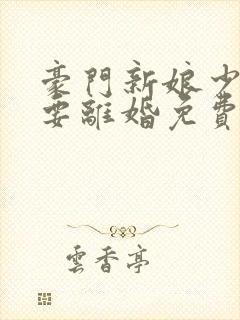 豪門新娘少
要離婚免費
雲香亭